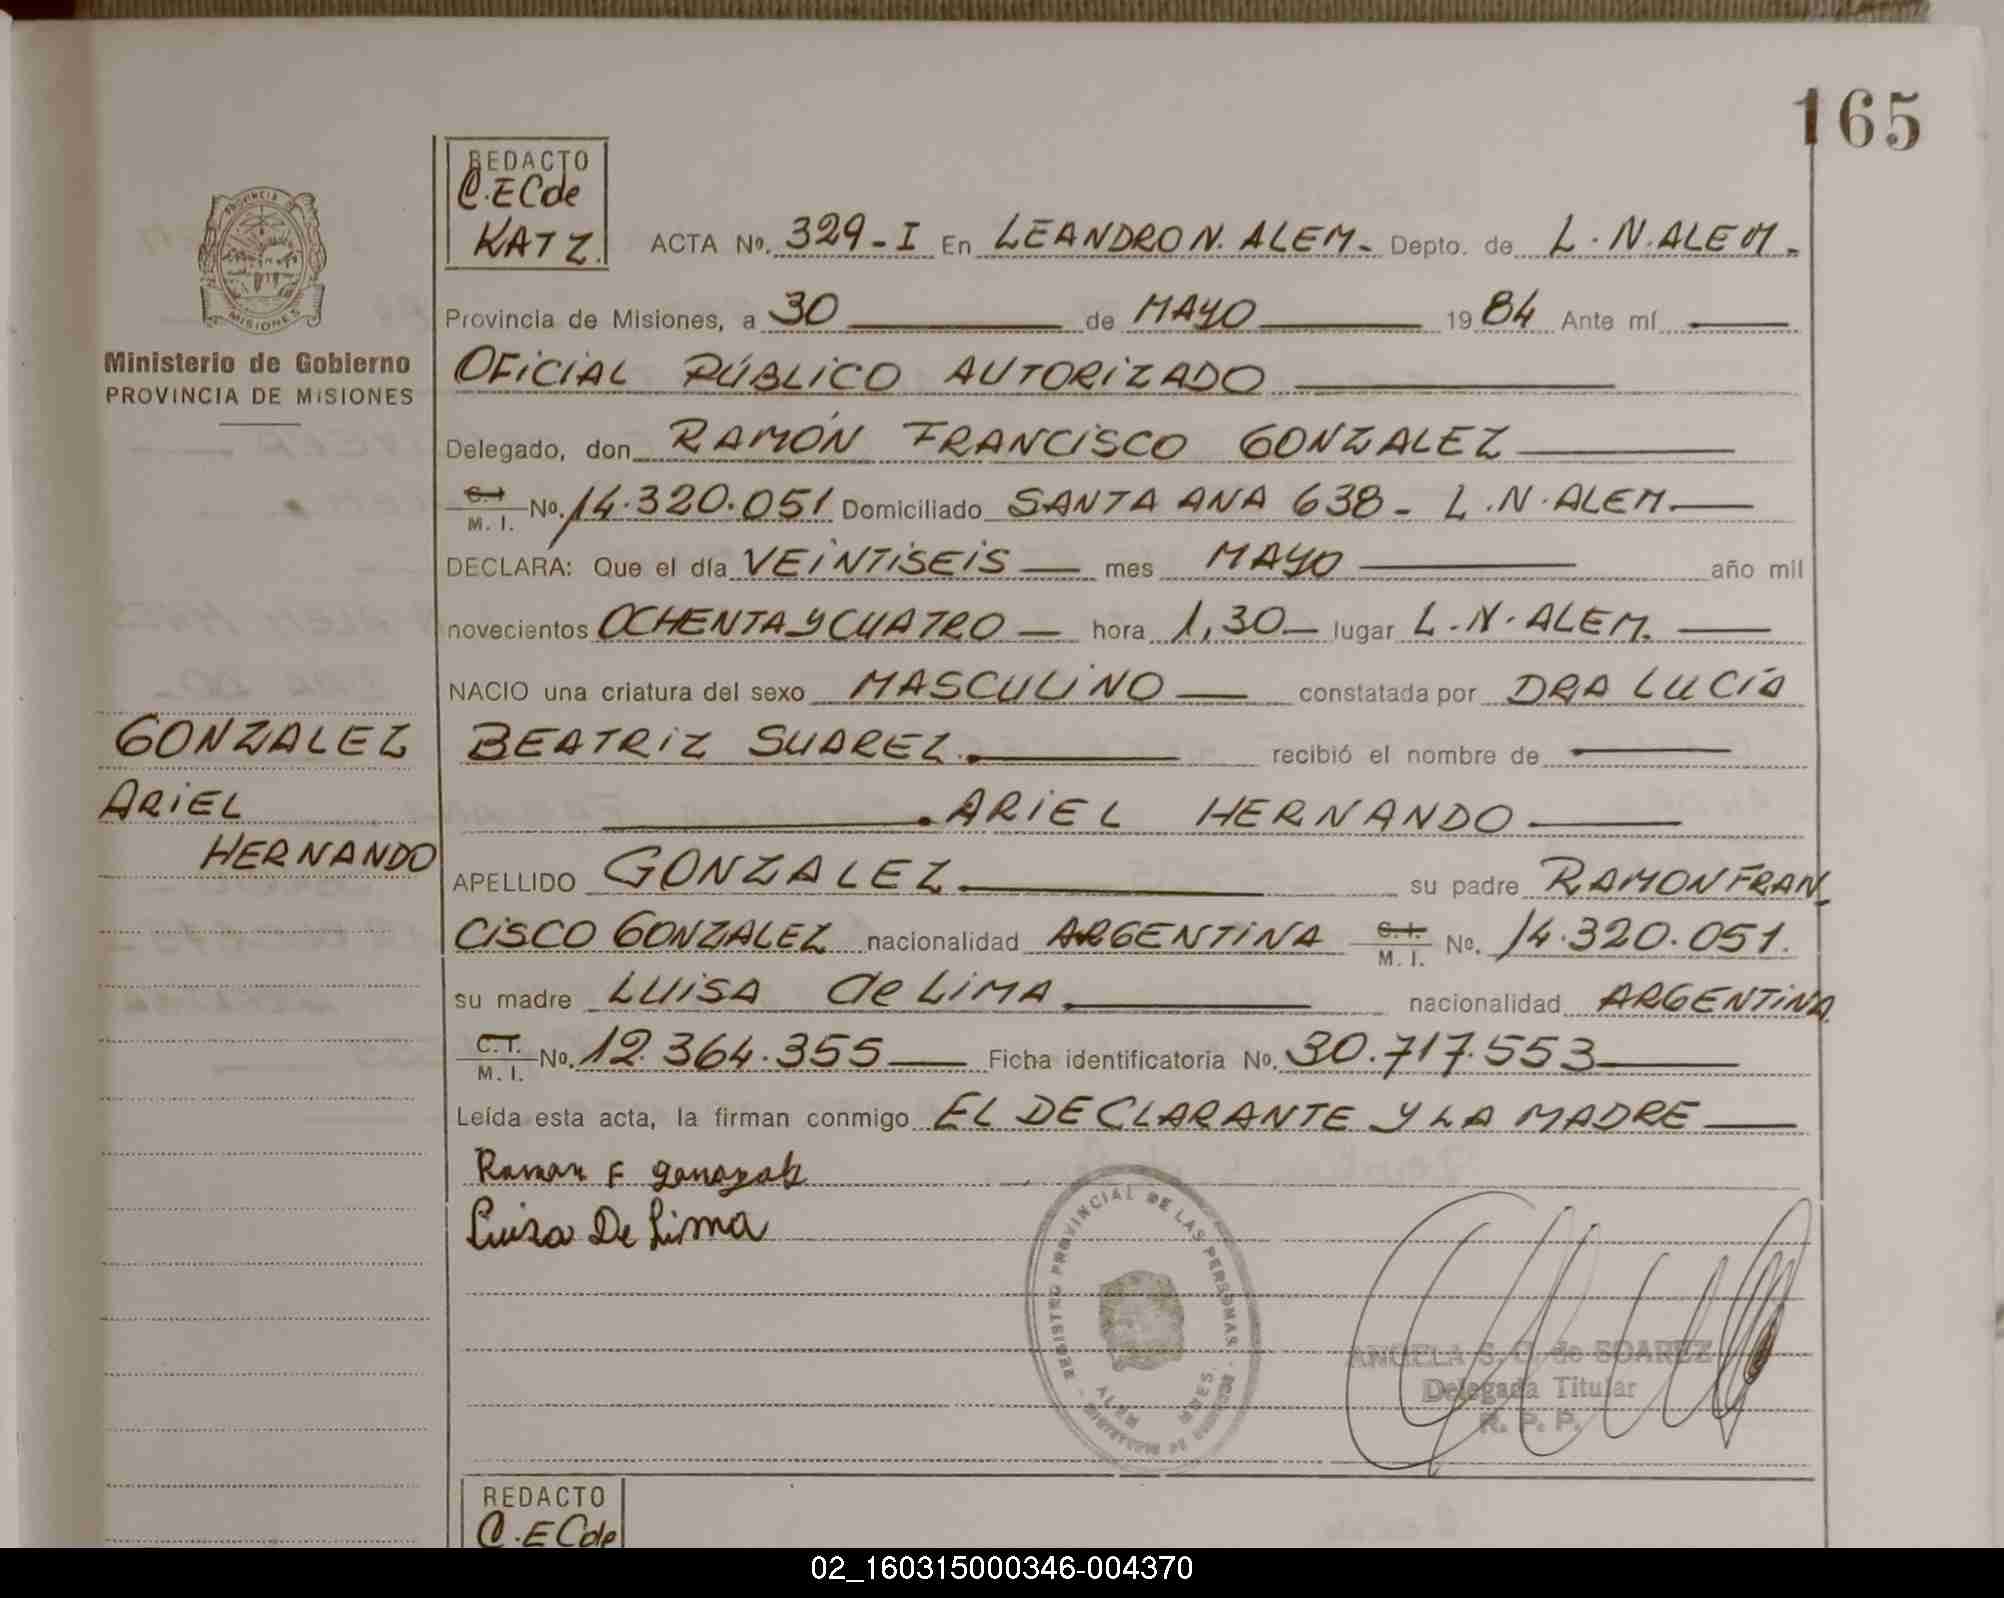 165
REDACTO
C.ECde
KATZ.
ACTA Nº. 329-I En LEANDRO N. ALEM- Depto. de L.N.ALEM.-
PROVINCIA DE
MISIONES
Ministerio de Gobierno
PROVINCIA DE MISIONES
Provincia de Misiones, a 30 de MAYO 1984 Ante mí
OFICIAL PÚBLICO AUTORIZADO
Delegado, don RAMÓN FRANCISCO GONZALEZ
C.I. M.I. Nº. 14.320.051 Domiciliado SANTA ANA 638 - L.N.ALEM.
DECLARA: Que el día VEINTISEIS mes MAYO año mil
novecientos OCHENTA Y CUATRO hora 1,30 lugar L.N.ALEM.
NACIO una criatura del sexo MASCULINO constatada por DRA LUCÍA
BEATRIZ SUAREZ. recibió el nombre de
ARIEL HERNANDO
APELLIDO GONZALEZ su padre RAMON FRAN
CISCO GONZALEZ nacionalidad ARGENTINA C.I. M.I. Nº. 14.320.051.
su madre LUISA de LIMA nacionalidad ARGENTINA
C.I. M.I. Nº. 12.364.355 Ficha identificatoria Nº. 30.717.553
Leída esta acta, la firman conmigo EL DECLARANTE Y LA MADRE
GONZALEZ
ARIEL
HERNANDO
Ramon F gonazalz
Luisa De Lima
REGISTRO PROVINCIAL DE LAS PERSONAS
ALEM
MNES.
ANGELA S. C. de SOAREZ
Delegada Titular
R. P. P.
REDACTO
C.ECde
02_160315000346-004370